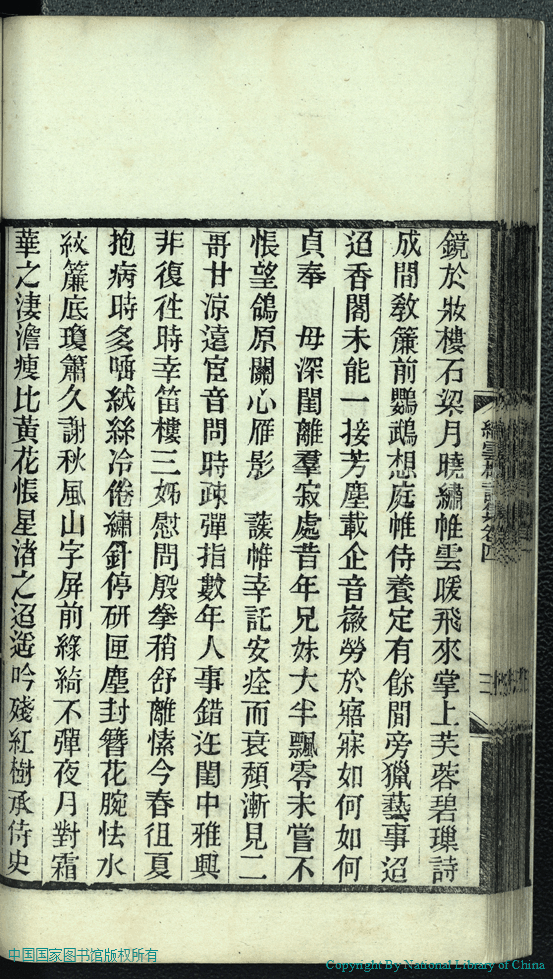 鏡於妝樓石梁月曉繡帷雲暖飛來掌上芙蓉碧璅詩
成間敎簾前鸚鵡想庭帷侍養定有餘閒旁獵藝事迢
迢香閣未能一接芳塵載企音徽勞於寤寐如何如何
貞奉　母深閨離羣寂處昔年兄妹大半飄零未嘗不
悵望鴿原關心雁影　護帷幸託安痊而衰頹漸見二
哥甘涼遠宦音問時疎彈指數年人事錯迕閨中雅興
非復徃時幸笛樓三姊慰問殷拳稍舒離愫今春徂夏
抱病時多唾絨絲冷倦繡針停研匣塵封簪花腕怯水
紋簾底瓊簫久謝秋風山字屏前綠綺不彈夜月對霜
華之淒澹瘦比黃花悵星渚之迢遙吟殘紅樹承侍史
中国国家图书馆版权所有
Copyright By National Library of China